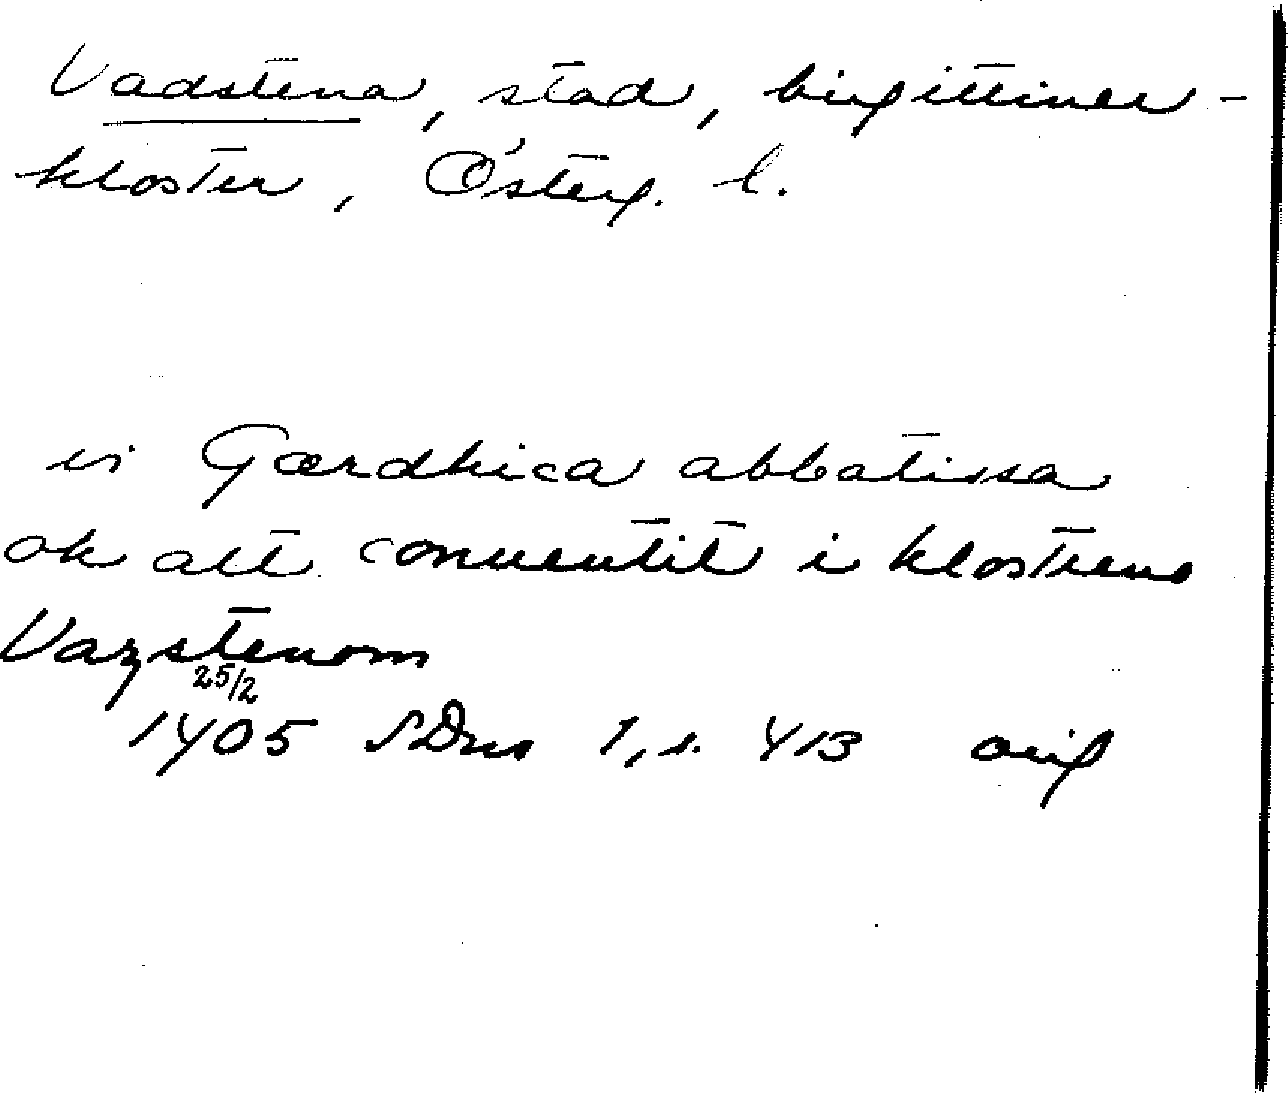 Vadstena, stad, birgittiner-
kloster, Österg. l.
vi Gærdhica abbatissa
ok alt conuentit i klostreno
Vazstenom
25/2
1405 SDns 1, s. 413 orig